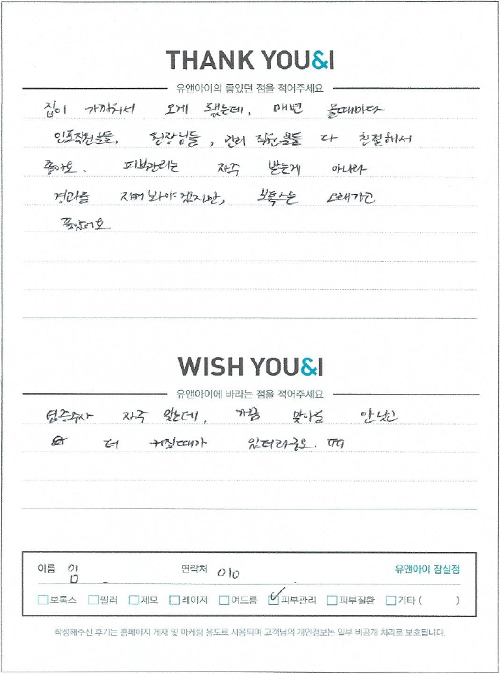 THANK YOU&I
유앤아이의 좋았던 점을 적어주세요
집이 가까워서 오게 됐는데, 매번 올때마다
인포직원분들, 원장님들, 관리 직원분들 다 친절해서
좋아요. 피부관리는 자주 받는게 아니라
경과를 지켜봐야 겠지만, 보톡스는 오래가고
좋았어요
WISH YOU&I
유앤아이에 바라는 점을 적어주세요
염증주사 자주 맞는데, 가끔 맞아도 안낫고
더 커질때가 있더라구요. ㅠㅠ
이름 임
연락처 010
유앤아이 잠실점
보톡스 필러 제모 레이저 여드름 피부관리 피부질환 기타 ( )
작성해주신 후기는 홈페이지 게재 및 마케팅 용도로 사용되며 고객님의 개인정보는 일부 비공개 처리로 보호됩니다.